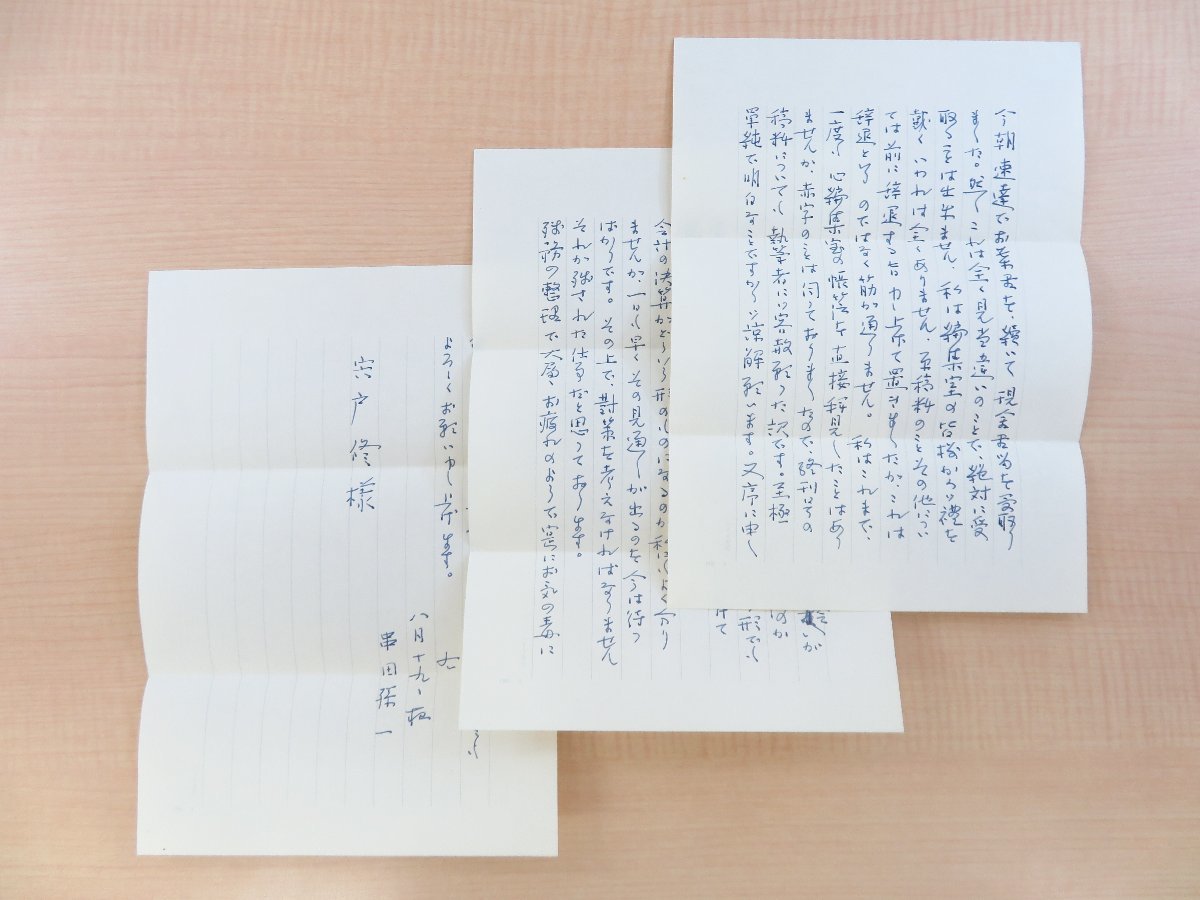 今朝速達でお葉書を、續いて現金書留を受取り
ました。然しこれは全く見当違いのことで、絶対に受
取ることは出来ません。私は編集室の皆様から礼を
戴くいわれは全くありません。原稿料のことその他につい
ては前に辞退する旨申し上げて置きましたが、これは
辞退という のではなく筋が通りません。 私はこれまで、
一度も 編集室の帳簿を直接拝見したことはあり
ませんが、赤字のことは伺っておりますので、終刊号の
稿料についても執筆者には容赦願った訳です。至極
單純で明白なことですから御諒解願います。又序に申し
いが
のか
形でも
けて
会計の決算がどういう形のものになるのか私にはよく分り
ませんが、一日も早くその見通しが出るのを今は待つ
ばかりです。その上で、對策を考えなければなりません
それが残された仕事だと思っております。
残務の整理で大層お疲れのようで実にお気の毒に
よろしくお願い申し上げます。
右
八月十九日 夜
串田孫一
宍戸修様